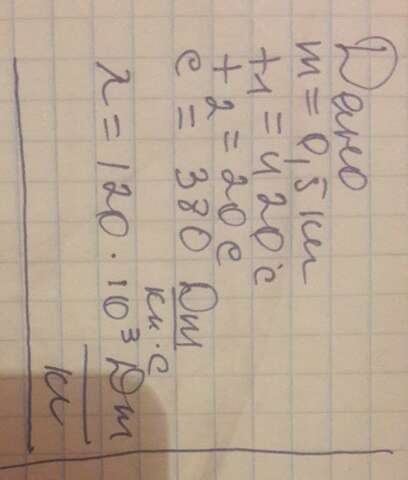 Дано
m = 0,5 кг
t1 = 420°C
t2 = 20°C
c = 380 Дж
кг·C
λ = 120·10³ Дж
кг